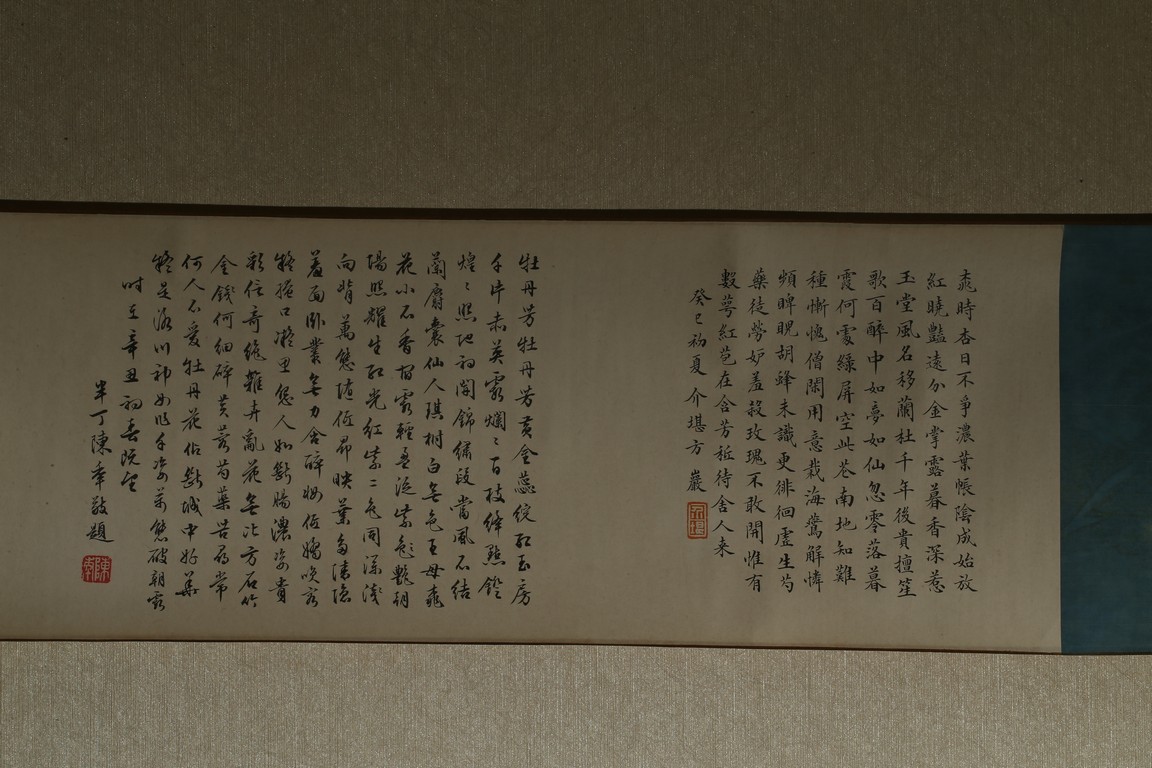 桃時杏日不爭濃葉帳陰成始放
紅曉豔遠分金掌露暮香深惹
玉堂風名移蘭杜千年後貴擅笙
歌百醉中如夢如仙忽零落暮
霞何處綠屏空此花南地知難
種慚愧僧閑用意栽海鷰解憐
頻睥睨胡蜂未識更徘徊虛生芍
藥徒勞妒羞殺玫瑰不敢開惟有
數萼紅苞在含芳秪待舍人來
癸巳初夏 介堪方巖
牡丹芳牡丹芳黃金蕊綻紅玉房
千片赤英霞爛〻百枝絳點燈
煌〻照地初開錦繡段當風不結
蘭麝囊仙人琪樹白無色王母桃
花小不香宿露輕盈泛紫艷朝
陽照耀生紅光紅紫二色間深淺
向背萬態隨低昂映葉多情隱
羞面臥叢無力含醉妝低嬌笑容
疑掩口凝思怨人如斷腸濃姿貴
彩信奇絕雜卉亂花無比方石竹
金錢何細碎芙蓉芍藥苦尋常
何人不愛牡丹花佔斷城中好華
疑是洛川神女作千姿萬態破朝霞
時在辛丑初春既望
半丁陳年敬題